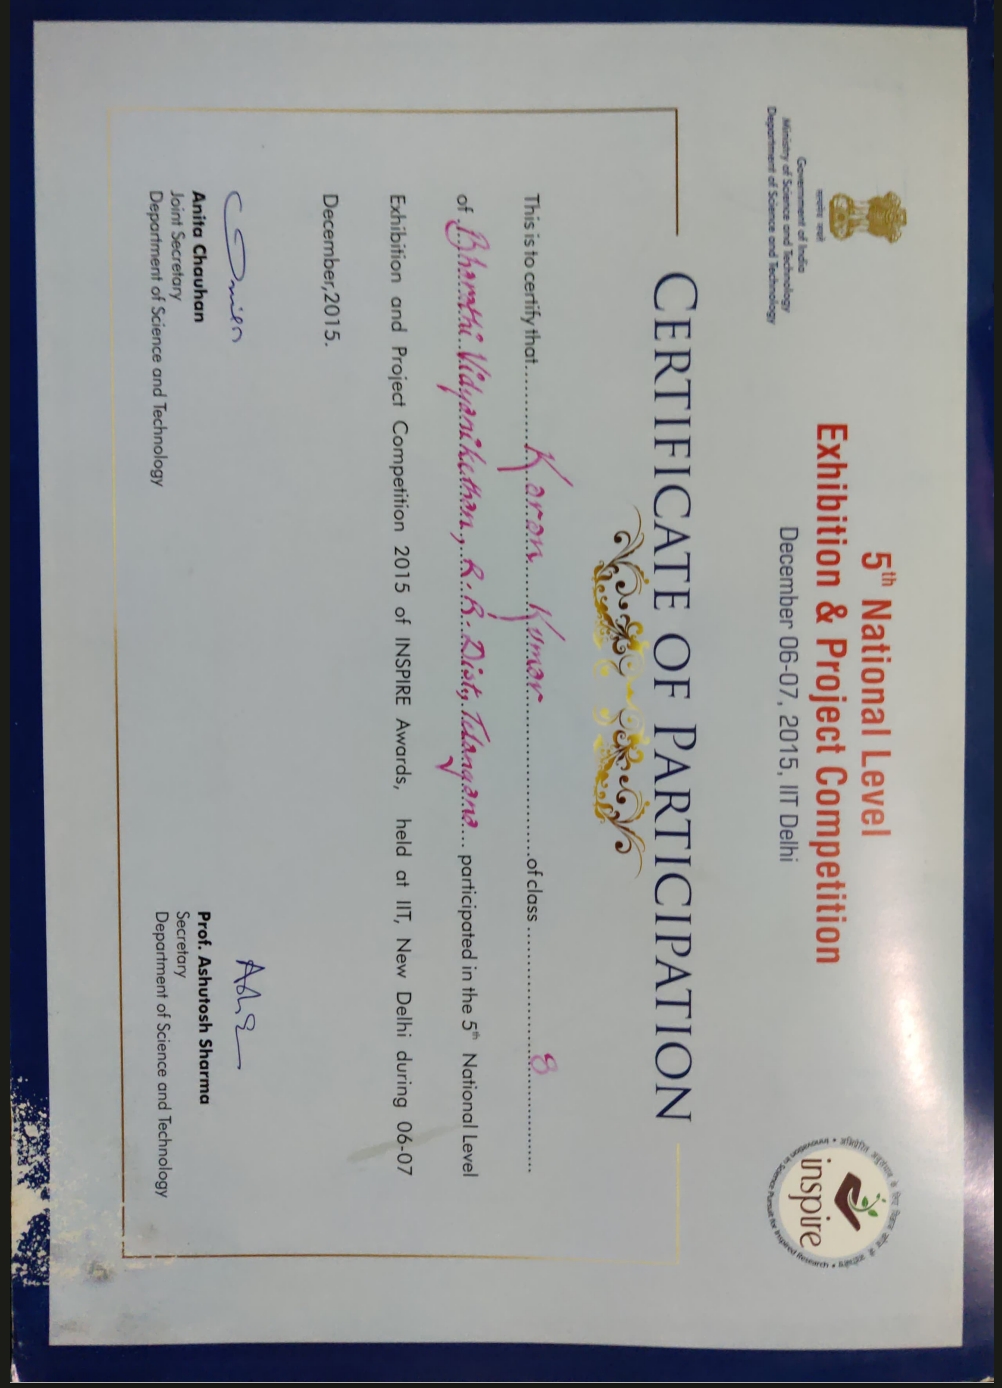 सत्यमेव जयते
Government of India
Ministry of Science and Technology
Department of Science and Technology
5th National Level
Exhibition & Project Competition
December 06-07, 2015, IIT Delhi
inspire
Innovation in Science Pursuit for Inspired Research
CERTIFICATE OF PARTICIPATION
This is to certify that Karan Kumar of class 8
of Bharathi Vidyanikethan, R.R. Dist, Telangana participated in the 5th National Level
Exhibition and Project Competition 2015 of INSPIRE Awards, held at IIT, New Delhi during 06-07
December,2015.
Anita Chauhan
Joint Secretary
Department of Science and Technology
Prof. Ashutosh Sharma
Secretary
Department of Science and Technology